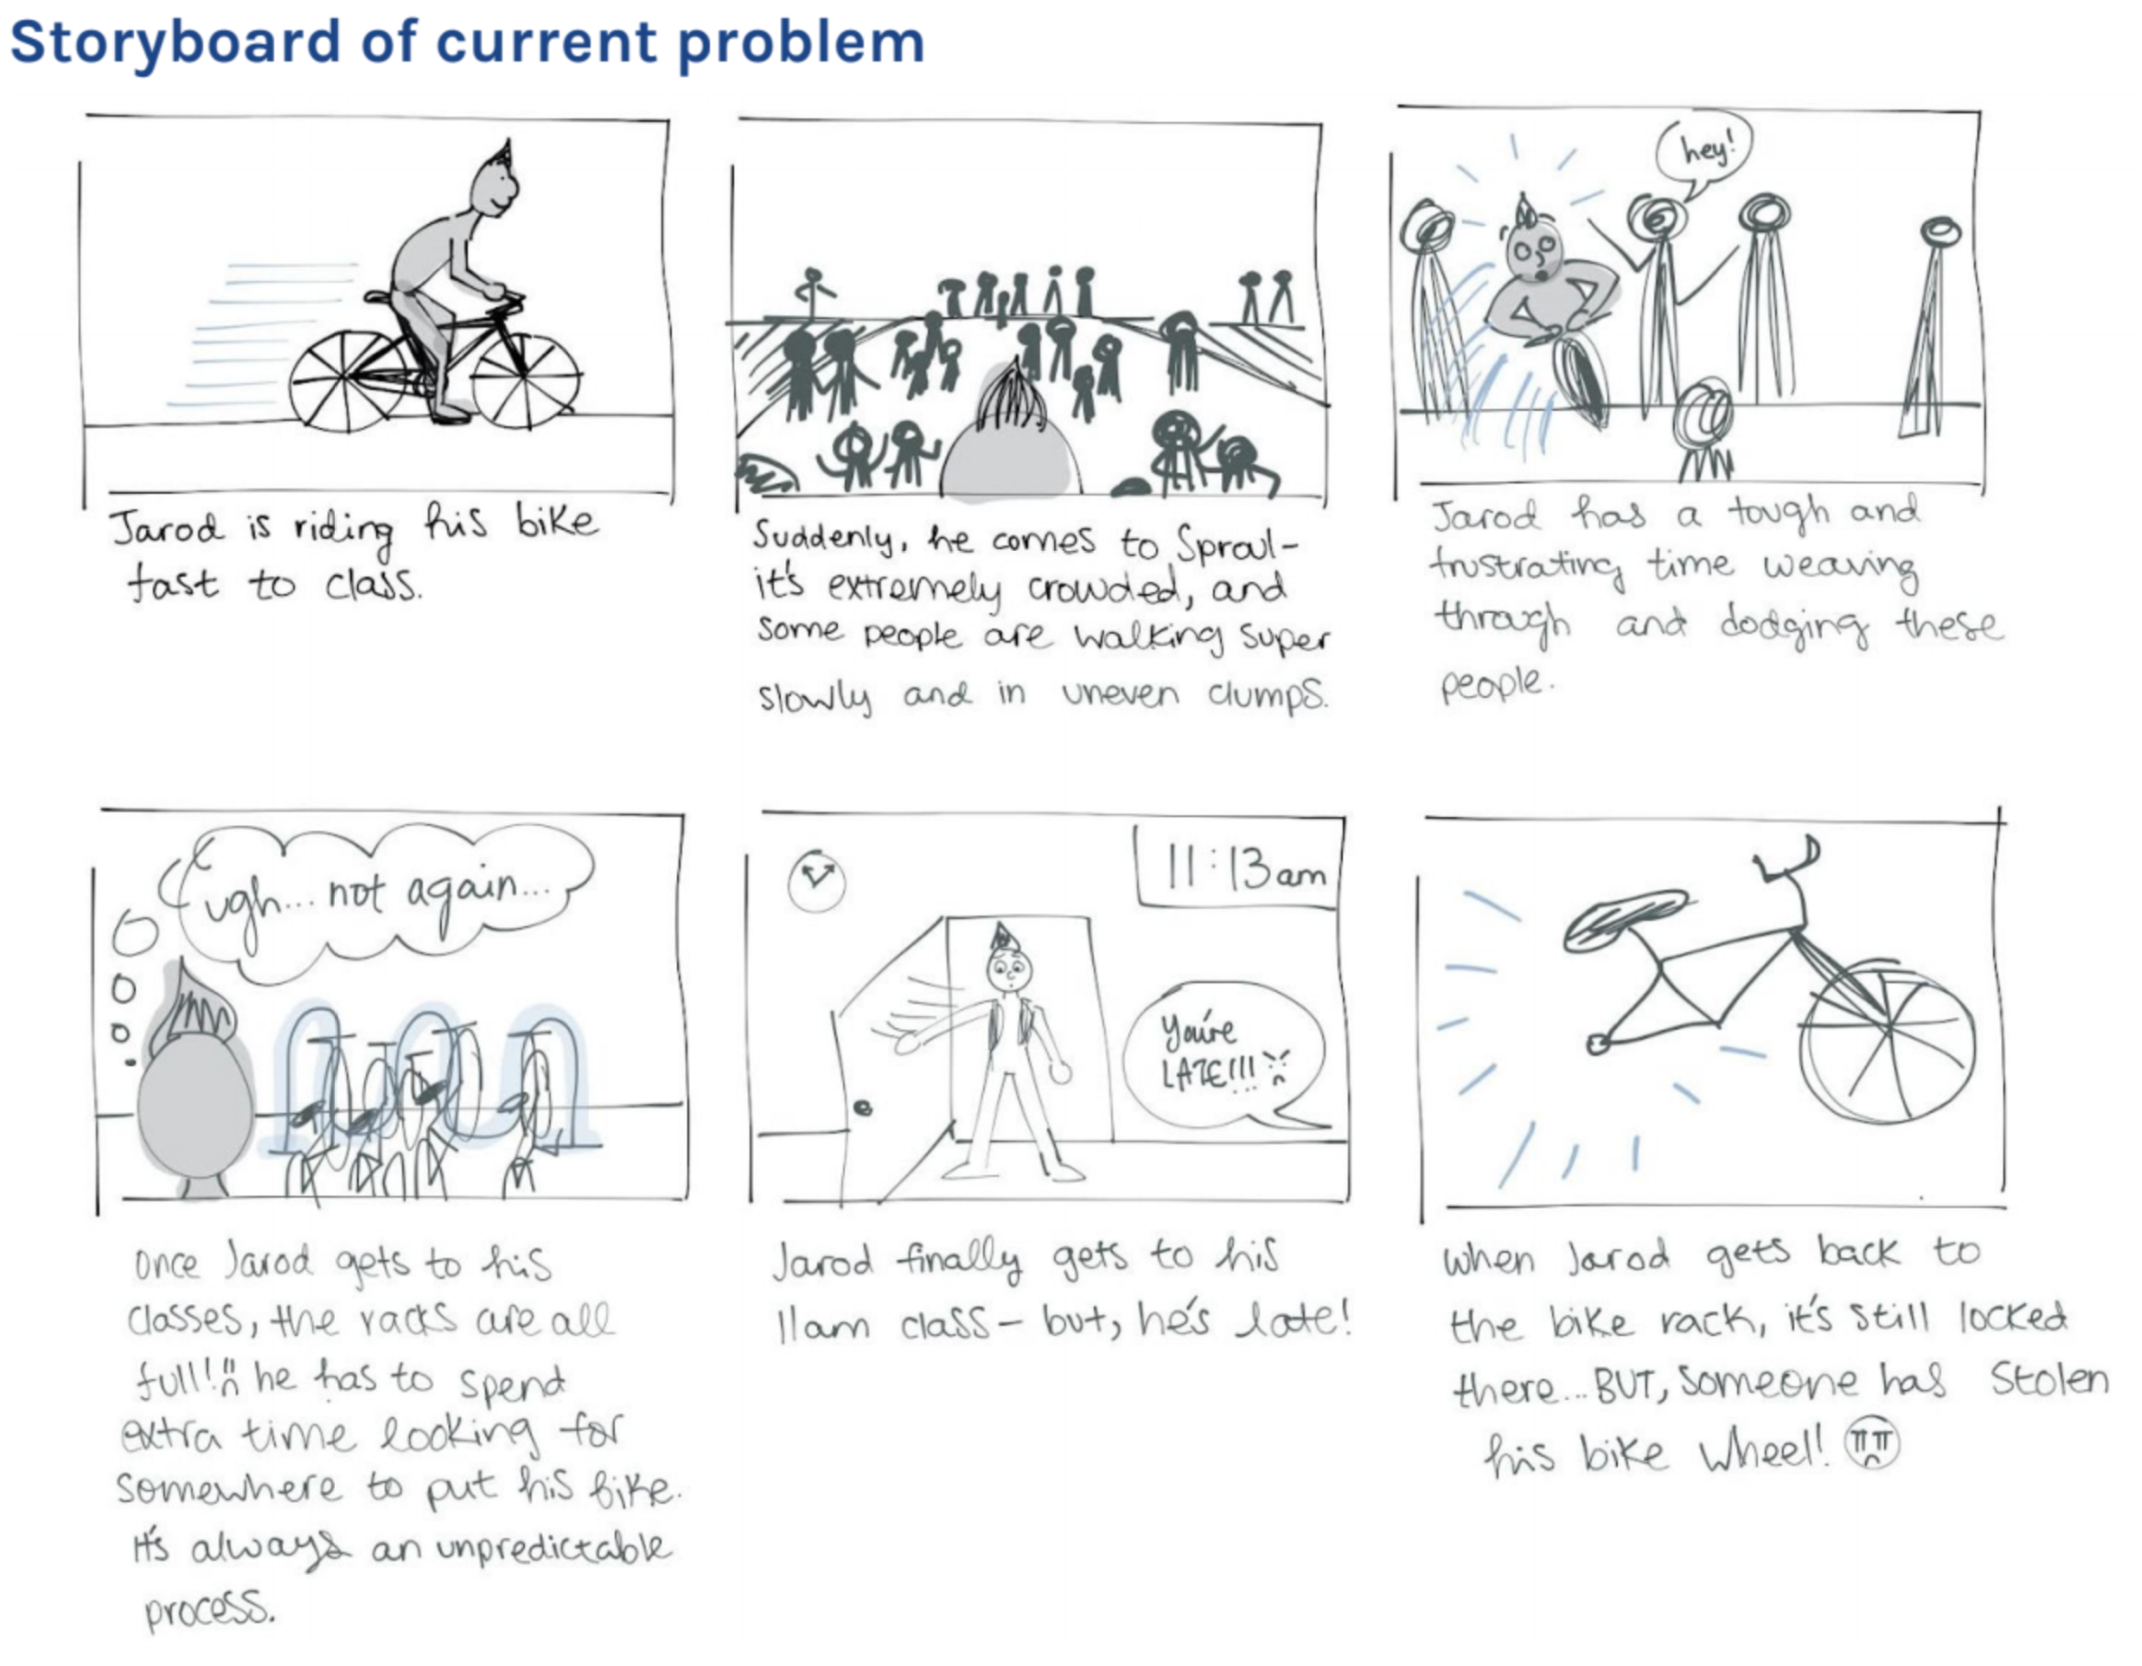 Storyboard of current problem
Jarod is riding his bike
fast to class.
Suddenly, he comes to Sproul-
it's extremely crowded, and
some people are walking super
slowly and in uneven clumps.
hey!
Jarod has a tough and
frustrating time weaving
through and dodging these
people.
ugh... not again...
Once Jarod gets to his
classes, the racks are all
full! he has to spend
extra time looking for
somewhere to put his bike.
It's always an unpredictable
process.
11:13am
You're
LATE!!!
Jarod finally gets to his
11am class - but, he's late!
When Jarod gets back to
the bike rack, it's still locked
there... BUT, someone has stolen
his bike wheel!